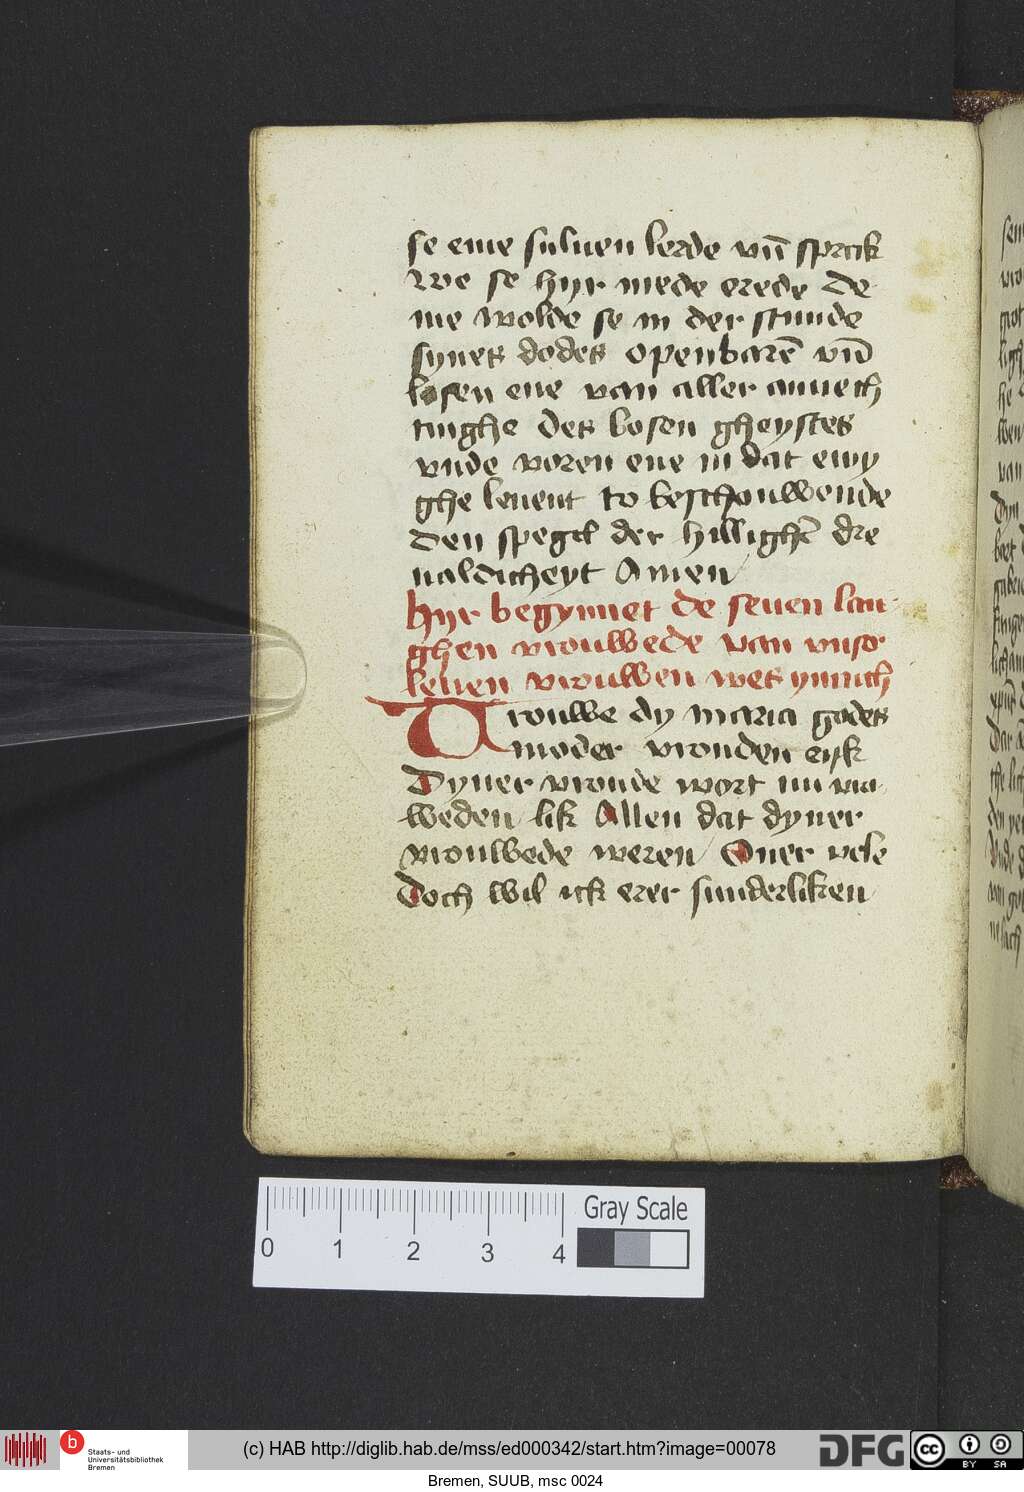 se eme suluen lerde vn̄ sprak
We se hyr mede erede de
me wolde se in der stunde
synes dodes openbarē vn̄
losen ene van aller anuech
tinghe des bosen gheystes
vnde voren ene in dat ewy
ghe leuent to beschouwende
den spegel der hillighē dre
ualdicheyt Amen
hyr begynnet de seuen lan-
ghen vrouwede van vnser
leuen vrouwen wes ynnich
Urouwe dy maria godes
moder vrouden rijk
Dyner vroude wort nu vra-
weden lik Allen dat dyner
vrouwede weren Ouer vele
Doch wil ick erer sunderliken
0 1 2 3 4 Gray Scale
b Staats- und
Universitätsbibliothek
Bremen
(c) HAB http://diglib.hab.de/mss/ed000342/start.htm?image=00078
DFG
cc BY SA
Bremen, SUUB, msc 0024